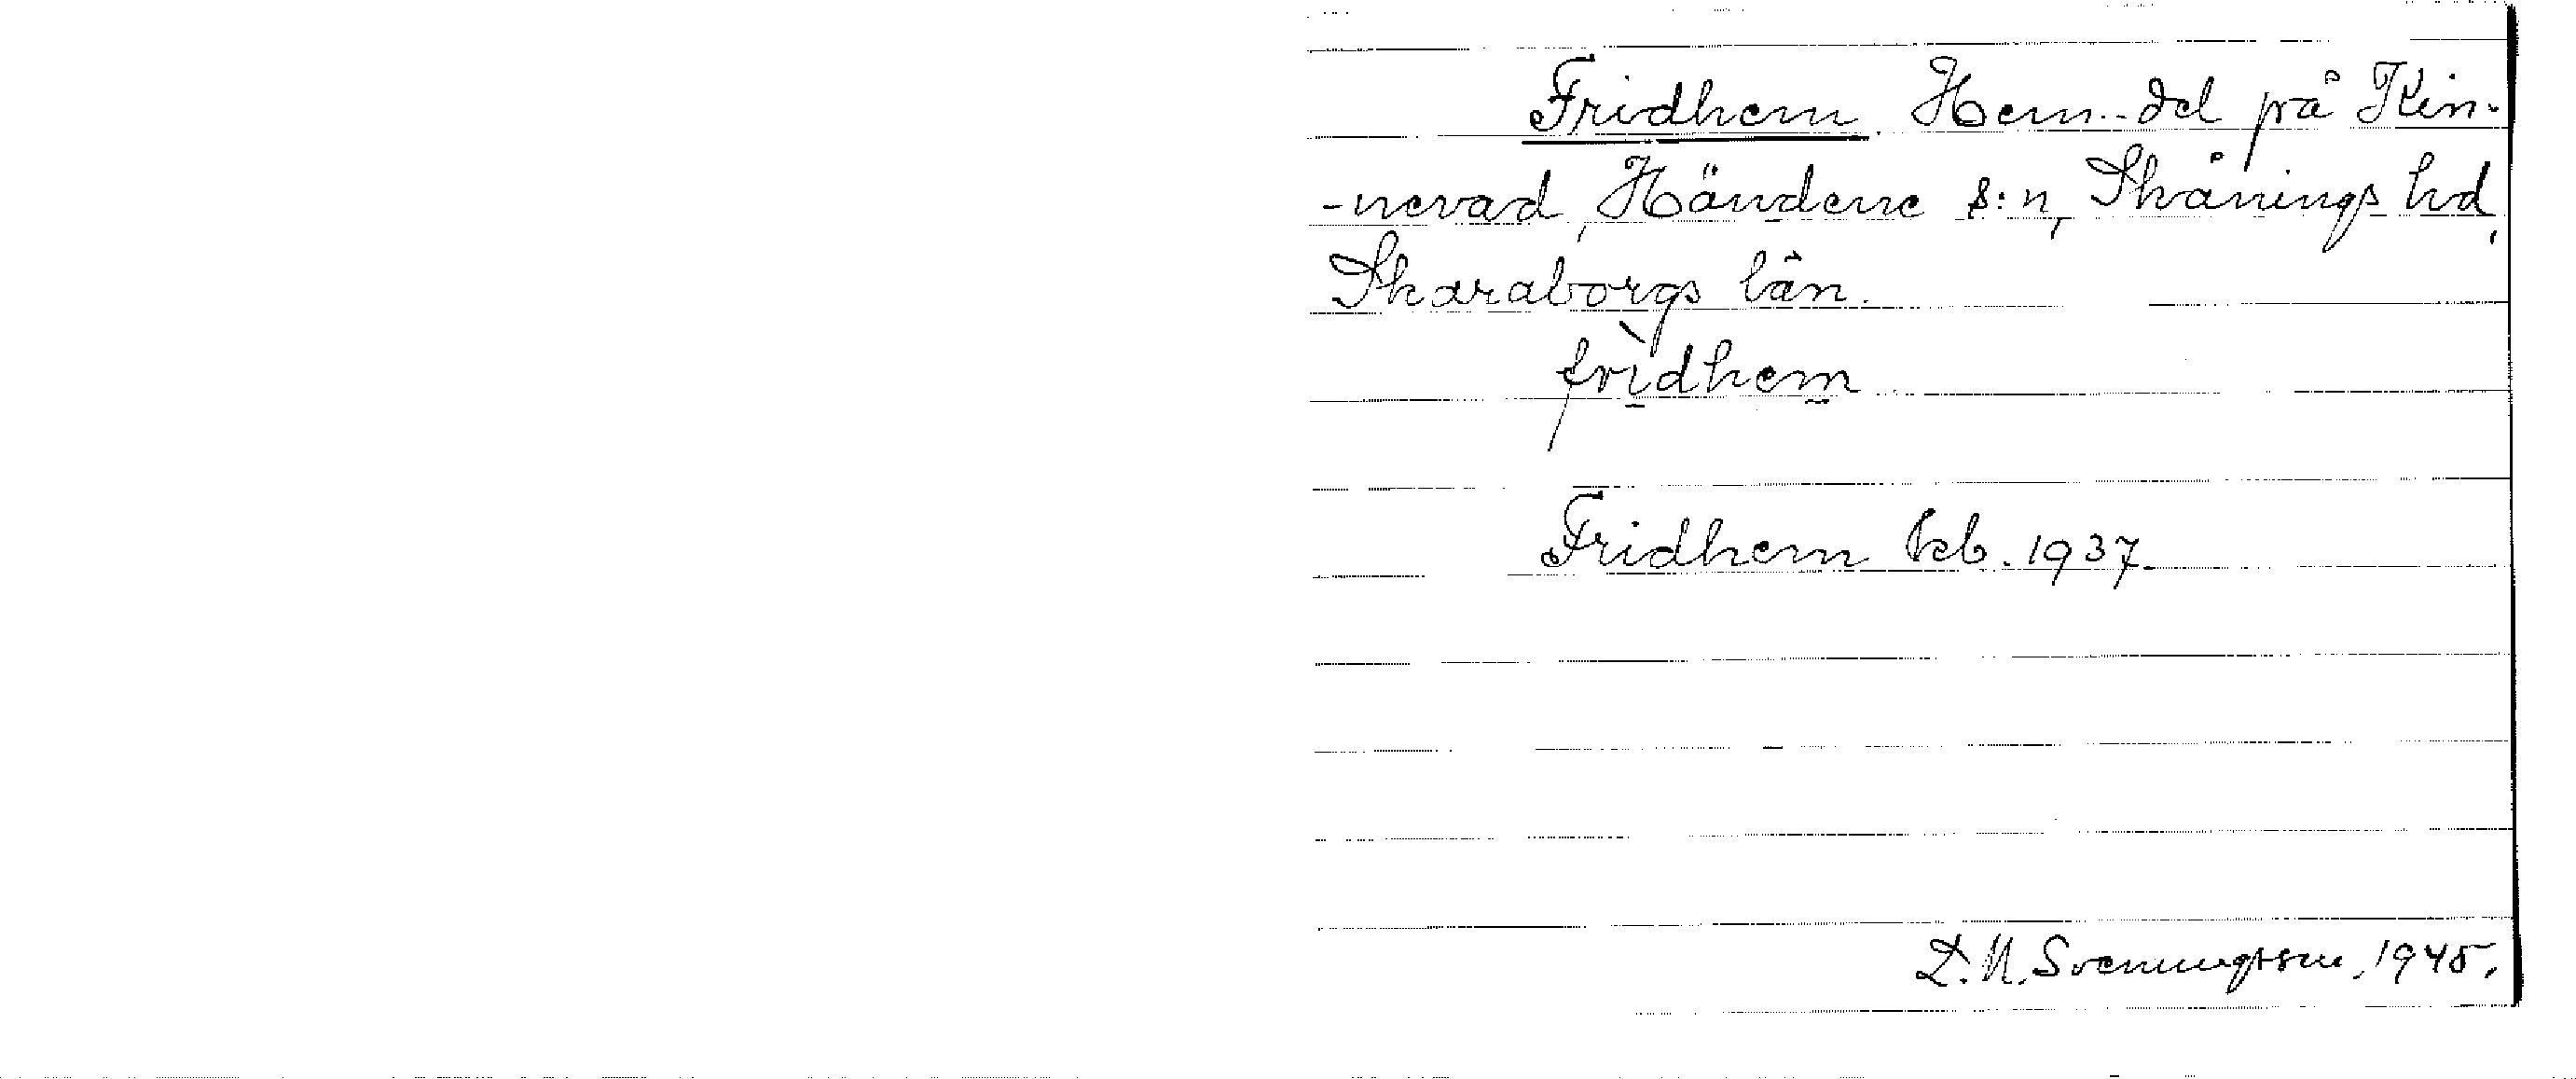 Fridhem. Hem.-del på Kin-
-nevad, Händene s:n, Skånings hd,
Skaraborgs län.
frì̱dhem̰
Fridhem kb. 1937.
D. N. Svenningsson, 1945.